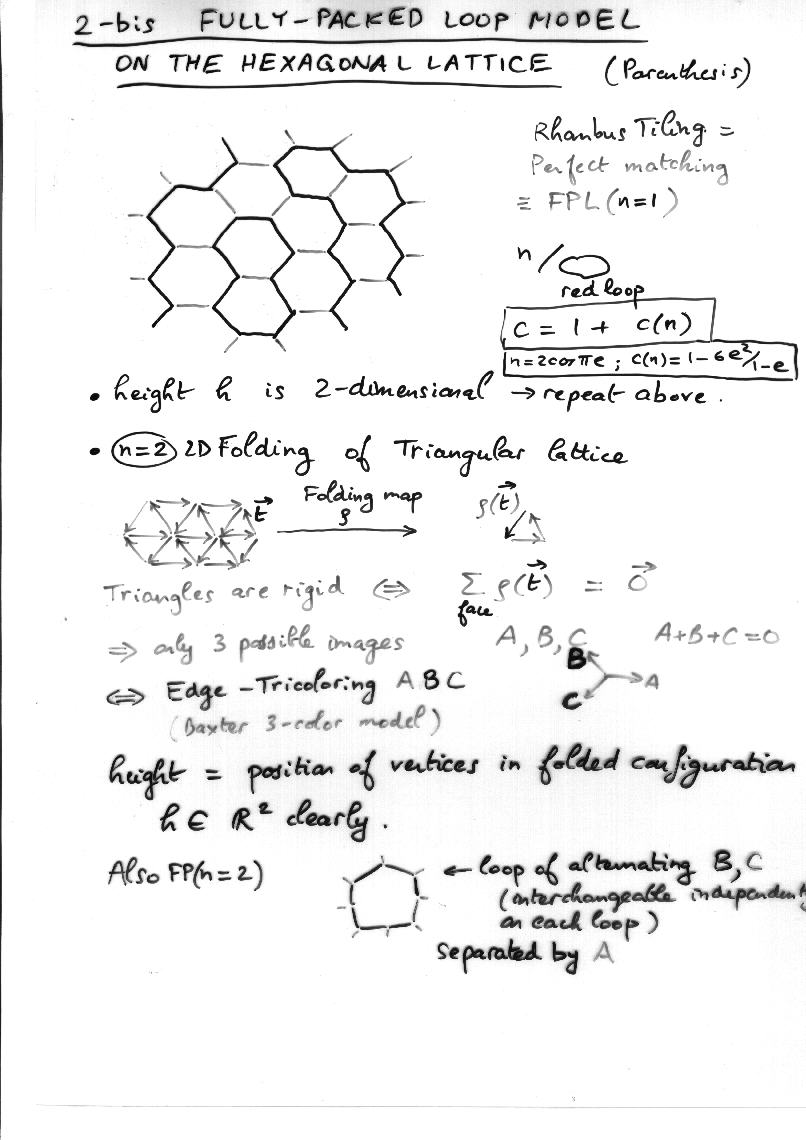 2-bis FULLY-PACKED LOOP MODEL
ON THE HEXAGONAL LATTICE (Parenthesis)
Rhombus Tiling =
Perfect matching
≡ FPL (n=1)
n /
red loop
C = 1 + c(n)
n=2cosπe ; c(n)=1-6e²/1-e
• height h is 2-dimensional → repeat above.
• n=2 2D Folding of Triangular lattice
t Folding map ρ(t)
ρ
Triangles are rigid ⇔ Σ ρ(t) = 0
face
⇒ only 3 possible images A, B, C A+B+C=0
B
A
C
⇔ Edge-Tricoloring A B C
(Baxter 3-color model)
height = position of vertices in folded configuration
h ∈ R² clearly.
Also FP(n=2) ← loop of alternating B, C
(interchangeable independently
on each loop)
separated by A